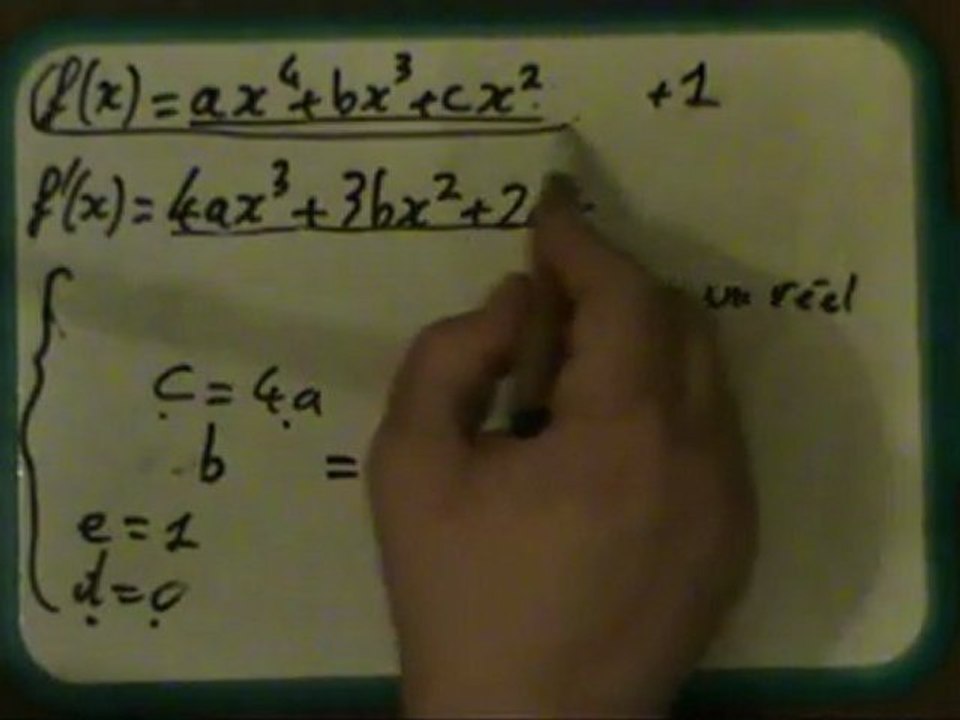 f(x) = ax⁴ + bx³ + cx² + 1
f'(x) = 4ax³ + 3bx² + 2
un réel
c = 4a
b =
e = 1
d = 0